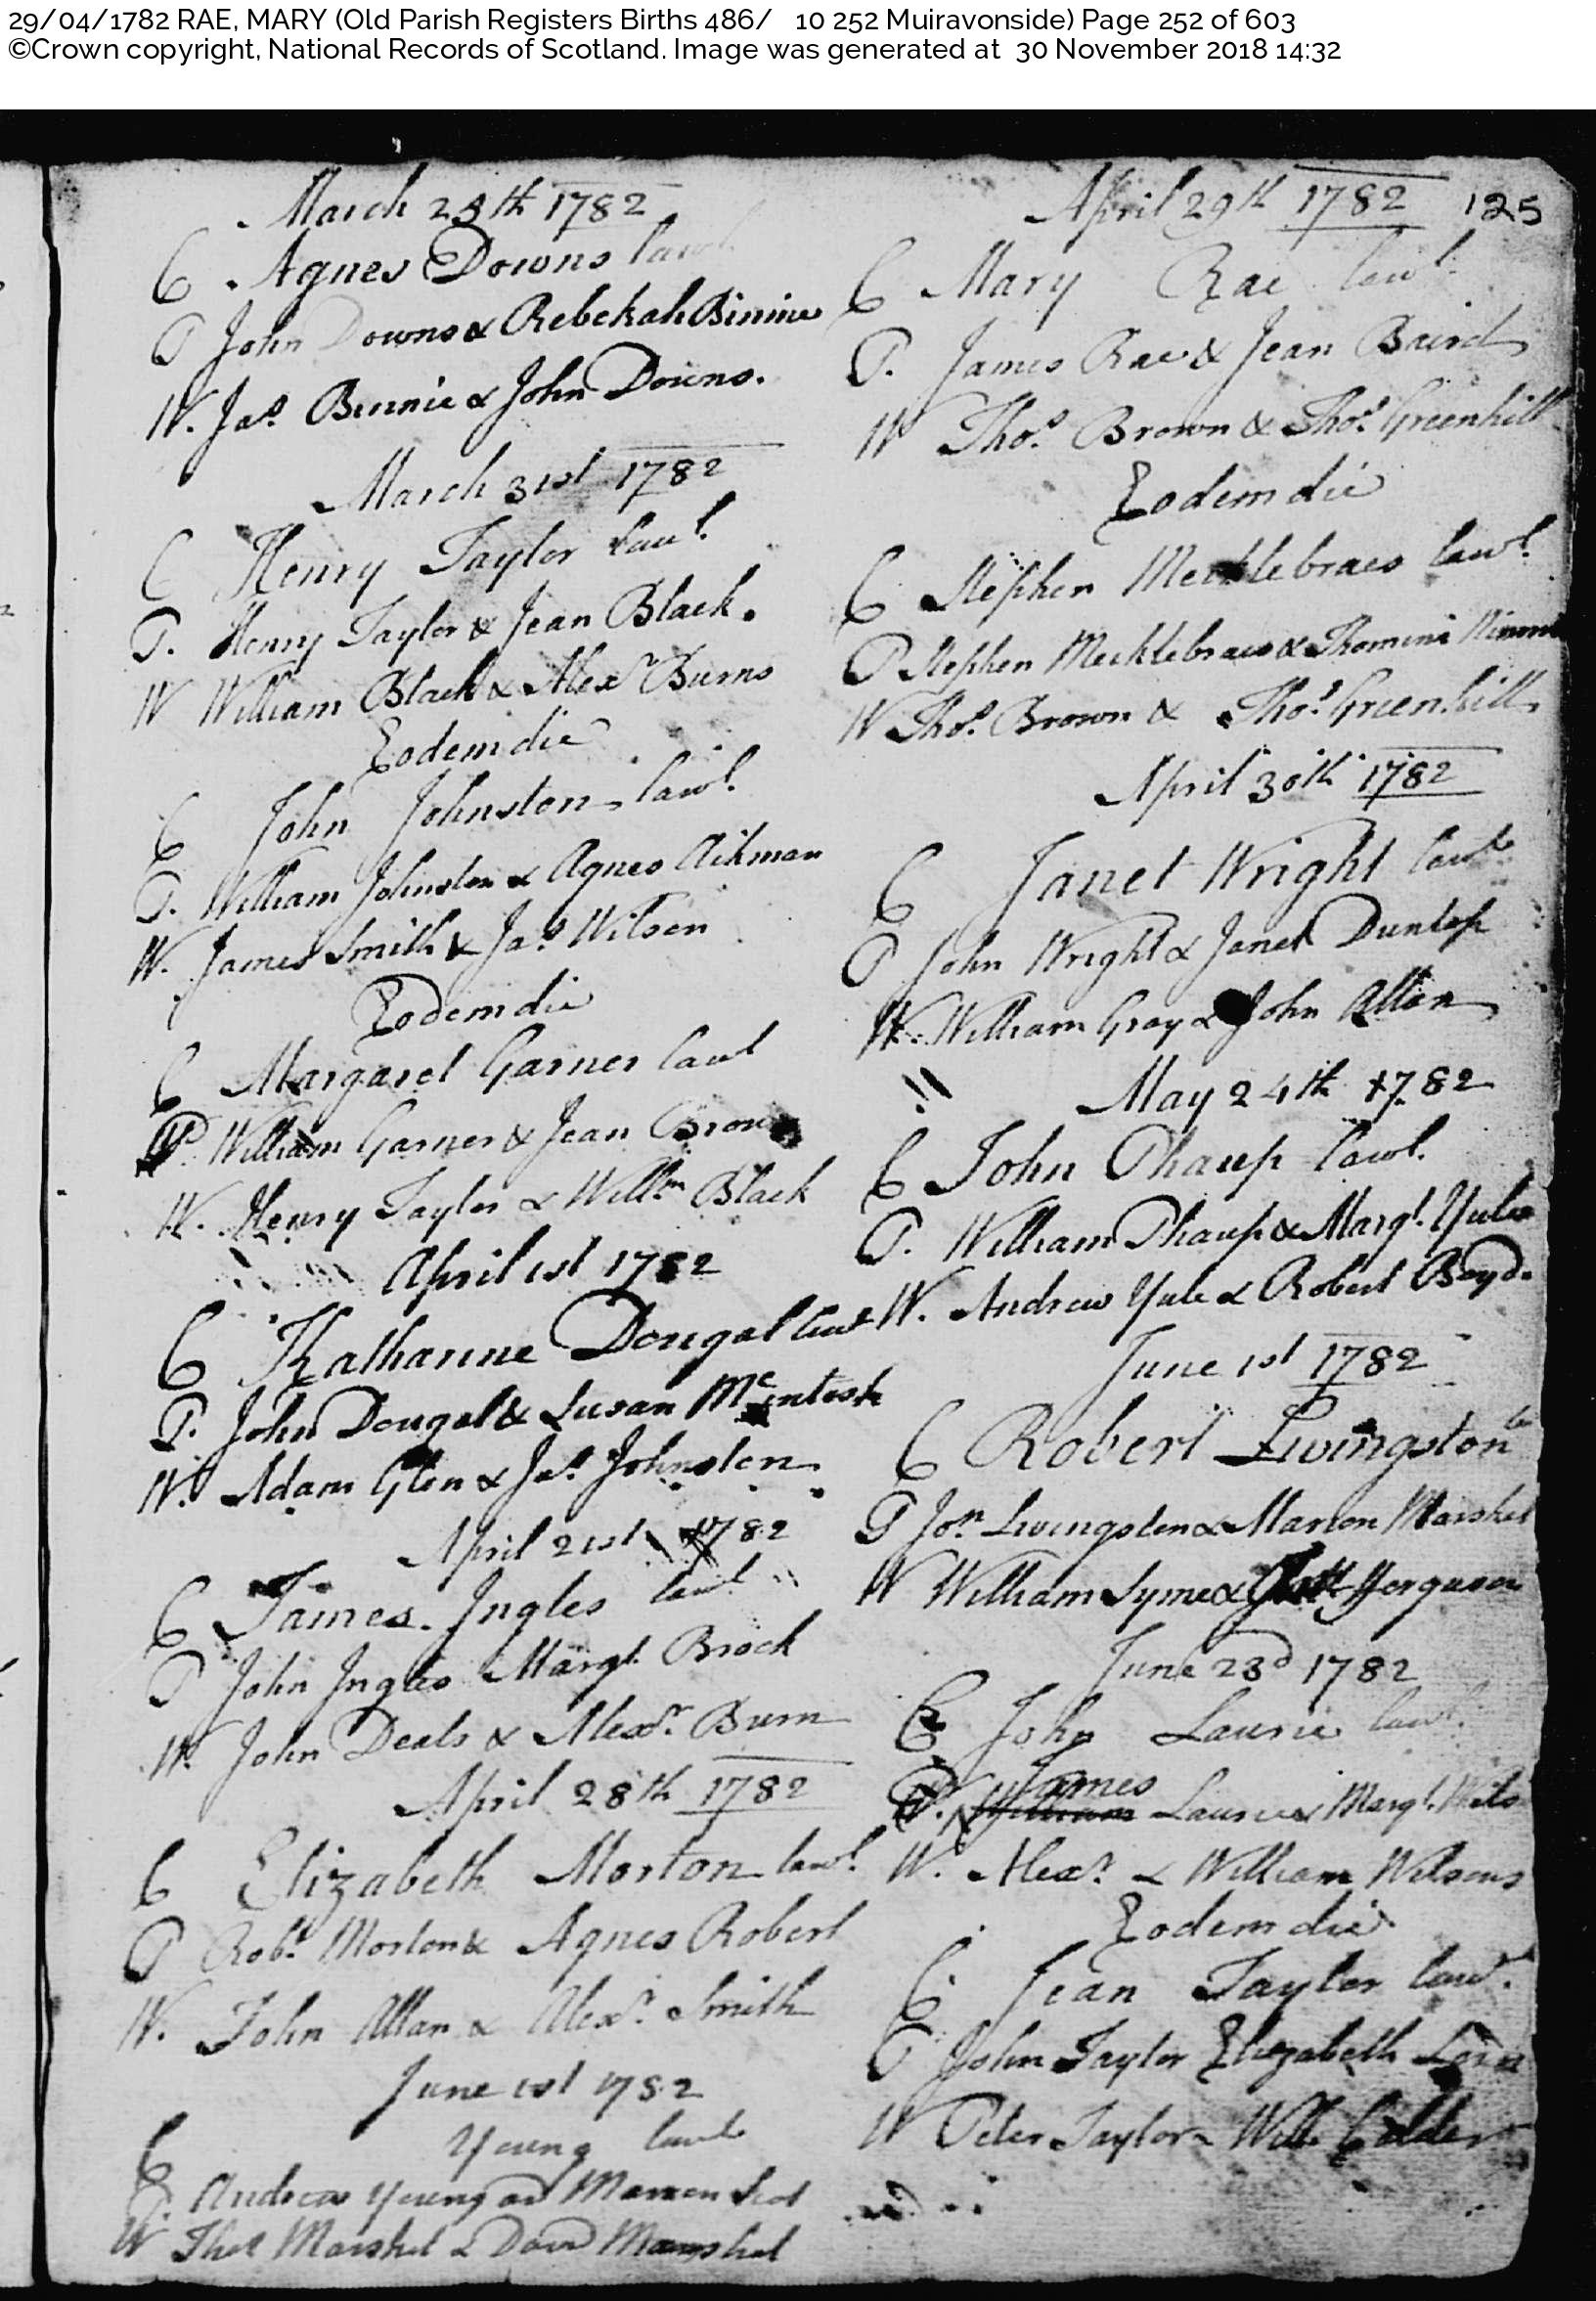 29/04/1782 RAE, MARY (Old Parish Registers Births 486/ 10 252 Muiravonside) Page 252 of 603
©Crown copyright, National Records of Scotland. Image was generated at 30 November 2018 14:32
March 25th 1782
C Agnes Downs lawl
P John Downs & Rebekah Binnie
W. Jas. Binnie & John Downs.
March 31st 1782
C Henry Taylor Lawl.
P. Henry Taylor & Jean Black.
W William Black & Alexr Burns
Eodem die
C John Johnston lawl.
P. William Johnston & Agnes Aikman
W. James Smith & Jas. Wilson
Eodem die
C Margaret Garner lawl
P William Garner & Jean Brown
W. Henry Taylor & Willm Black
April 1st 1782
C Katharine Dougal lawl
P. John Dougal & Susan Mcintosh
W. Adam Glen & Jas. Johnston
April 21st 1782
C James Ingles lawl
P John Ingles Margt. Brock
W. John Deals & Alexr. Burn
April 28th 1782
C Elizabeth Morton lawl.
P Robt. Morton & Agnes Robert
W. John Allan & Alexr. Smith
June 1st 1782
C Young lawl
P. Andrew Young and Marion Scot
W Thos Marshel & David Marshel
125
April 29th 1782
C Mary Rae lawl.
P. James Rae & Jean Baird
W Thos. Brown & Thos. Greenhill
Eodem die
C Stephen Mecklebraes lawl.
P Stephen Mecklebraes & Thomina
W Thos. Brown & Thos. Greenhill
April 30th 1782
C Janet Wright lawl
P John Wright & Janet Dunlop
W. William Gray & John Allan
May 24th 1782
C John Phaup lawl.
P. William Phaup & Margt. Yule
W. Andrew Yule & Robert Boyd.
June 1st 1782
C Robert Livingston
P Jon Livingston & Marion Marshel
W William Syme & Ferguson
June 23d 1782
C John Laurie lawl.
James
P. William Laurie & Margt.
W. Alexr. & William Wilsons
Eodem die
C. Jean Taylor lawl.
P John Taylor Elizabeth
W Peter Taylor & Will. Calder